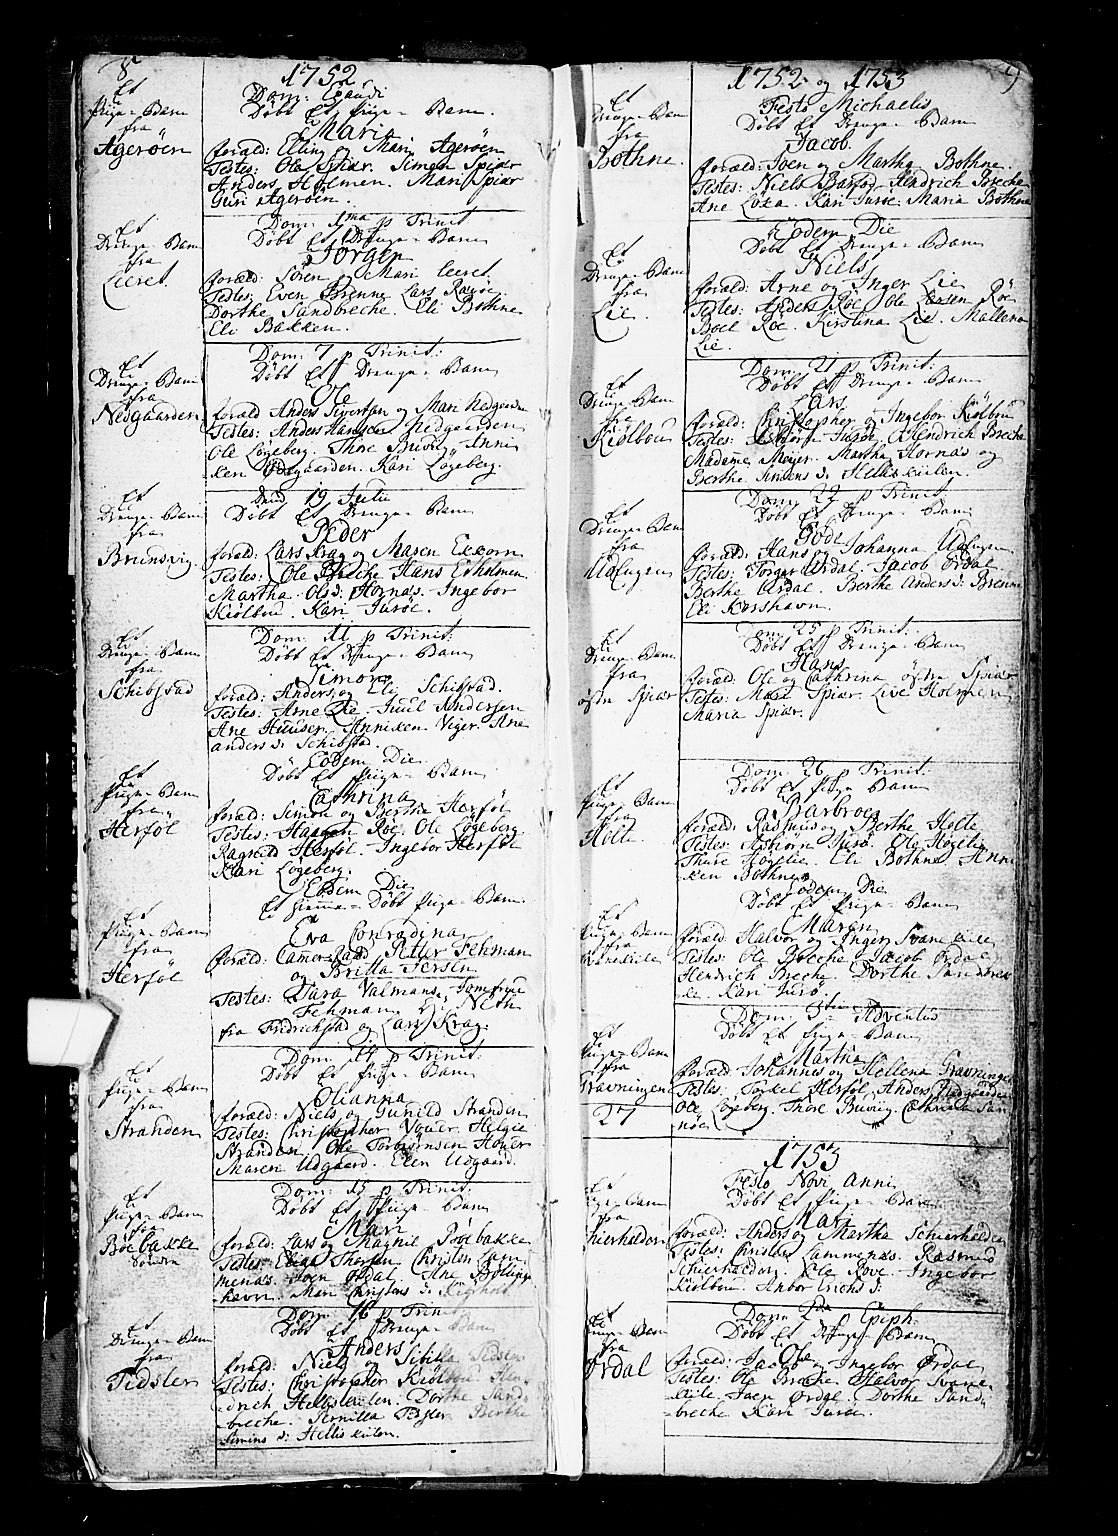 8
1752
Et
Pige-Barn
fra
Agerøen
Dom: Exaudi
Døbt Et Pige-Barn
Maria
foræld: Elling Mari Agerøen
Testes: Ole Spiær. Simen Spiær
Anders Holmen. Mari Spiær
Guri Agerøen.
Et
Drenge-Barn
fra
Leeret.
Dom: 1ma p Trinit
Døbt Et Drenge-Barn
Jørgen
foræld: Søren Mari Leeret.
Testes: Even Brenne Lars
Dorthe Sandbreche. Eli Bothne
Eli Bakken.
Et
Drenge-Barn
fra
Nedgaarden
Dom: 7 p Trinit:
Døbt Et Drenge-Barn
Ole
foræld Anders Sivertsen og Mari Nedgaarden
Testes: Anders Nedgaarden
Ole Løgeberg. Thore Buvig. Anni
ken Kari Løgeberg.
Et
Drenge-Barn
fra
Brundvig
Dend 19 Julii
Døbt Et Drenge-Barn
Peder
foræld: Lars Krag og Maren Exxorn
Testes: Ole Breche Hans Erholmen
Martha Olsd: Hornæs. Ingebor
Kiølbou. Kari Jurøe.
Et
Drenge-Barn
fra
Schibstad
Dom: 11 p Trinit:
Døbt Et Drenge-Barn
Simon
foræld: Anders og Eli Schibstad.
Testes: Arne Lie. Juul Andersen
Ane Huuser. Anniken Viger. Ane
anders d: Schibstad.
Et
Pige-Barn
fra
Herføl
Eodem Die
Døbt Et Pige-Barn
Cathrina
foræld: Simon og Berthe Herføl
Testes: Haagen Roe. Ole Løgeberg
Ragnild Herføl. Ingebor Herføl
Kari Løgeberg.
Et
Pige-Barn
fra
Herføl
Eodem Die
Et hiemme-Døbt Pige-Barn.
Eva Conradina
foræld: Petter Fehman
og Britta Jersen
Testes: Sara Valmans. Jomfrue
Fehman
fra Fridrichstad og Lars Krag.
Et
Pige-Barn
fra
Stranden
Dom: 14 p Trinit:
Døbt Et Pige-Barn
Olianna
foræld: Niels og Gunild Stranden
Testes: Christopher Helgie
Stranden. Ole Torbiørnsen
Maren Udgaard. Elen Udgaard.
Et
Pige-Barn
fra
Bøebakke
Søndre
Dom: 15 p Trinit:
Døbt Et Pige-Barn
Mari
foræld: Lars og Magnil Bøebakke
Testes: Thorsen Christen Lam
menæs. Joen Ørdal. Ane
havn. Mari Christens d:
Et
Drenge-Barn
fra
Tidsler
Dom: 16 p Trinit
Døbt Et Drenge-Barn
Anders
foræld: Niels og Sibilla Tidsler
Testes: Christopher Kiølbou. Hen
drich Hellisleulen. Dorthe Sand
breche. Pernilla Tidsler Berthe
Simens d: Hellis kiilen.
9
1752 og 1753
Et
Drenge-Barn
fra
Bothne.
Festo Michaelis
Døbt Et Drenge-Barn
Jacob
foræld: Joen og Martha Bothne.
Testes: Niels Basfod. Hendrich Breche
Ane Løka. Kari Jurøe. Maria Bothne
Et
Drenge-Barn
fra
Lie.
Eodem Die
Døbt Et Drenge-Barn
Niels
foræld: Arne og Inger Lie
Testes: Anders Roe. Ole Larsen Röe
Boel Roe. Kirstina Lie. Mallena
Lie.
Et
Drenge-Barn
fra
Kiølbou
Dom: 21 p Trinit:
Døbt Et Drenge-Barn
Lars
foræld: Christopher og Ingebor Kiølbou
Testes: Asbiørn Jurøe. Hendrich Breche
Madame Meyer. Martha Hornæs og
Berthe Simens d: Hellis kiilen.
Et
Drenge-Barn
fra
Udlugen
Dom: 22 p Trinit
Døbt Et Drenge-Barn
Gode
foræld: Hans og Johanna Udlugen
Testes: Torger Ørdal. Jacob Ørdal
Berthe Ørdal. Berthe Anders d: Brenne
Eli Korshavn.
Et
Drenge-Barn
fra
østre Spiær
Dom 25 p Trinit:
Døbt Et Drenge-Barn
Hans
foræld: Ole og Cathrina østre Spiær
Testes: Mari Spiær. Live Holmen
Maria Spiær.
Et
Pige-Barn
fra
Holte
Dom: 26 p Trinit:
Døbt Et Pige Barn
Barbroe
foræld: Rasmus og Berthe Holte
Testes: Asbiørn Jurø. Ole Hogelie
Thure Hogelie. Eli Bothne Anni
ken Bothne
Et
Pige-Barn
fra
Eodem Die
Døbt Et Pige-Barn
Maren
foræld: Halvor og Inger Svane kiile
Testes: Ole Breche Jacob Ørdal
Hendrich Breche. Dorthe Sandbre
ke Kari Jurø.
Et
Pige-Barn
fra
Gravningen
27
Dom: 3tia Adventus
Døbt Et Pige-Barn
Martha
foræld Johannis og Hellena Gravningen
Testes: Torkel Herføl. Anders Nedgaarden
Ole Løgeberg. Thore Buvig. Cathrina San
nøe.
1753
Et
Pige-Barn
fra
Schierhalden
Festo Novi Anni
Døbt Et Pige-Barn
Mari
foræld: Anders og Martha Schierhalden
Testes: Christen Lammenæs. Rasmus
Schierhalden. Ole Rove. Ingebor
Kiølbou. Anbor Erichs d:
Et
Drenge-Barn
fra
Ørdal
Dom 2da Epiph.
Døbt Et Drenge-Barn
Ole
foræld: Jacob og Ingebor Ørdal
Testes: Ole Breche. Halvor Svane
kiile Joen Ørdal. Dorthe Sand
breche Kari Jurøe.